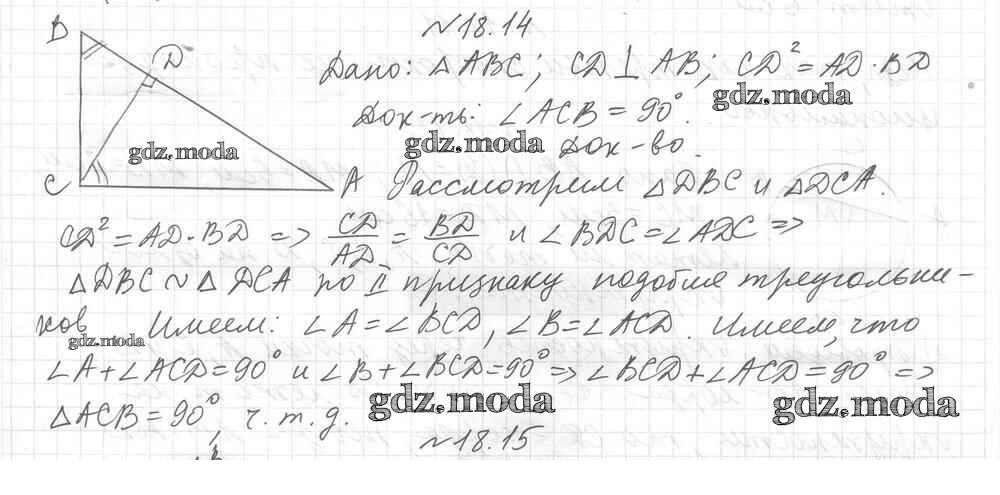 №18.14
B
D
Дано: △ABC; CD⊥AB; CD²=AD·BD
gdz.moda
Док-ть: ∠ACB=90°.
gdz.moda
gdz.moda
Док-во.
C
A
Рассмотрим △DBC и △DCA.
CD²=AD·BD => CD/AD=BD/CD и ∠BDC=∠ADC =>
△DBC~△DCA по II признаку подобия треугольни-
ков Имеем: ∠A=∠BCD, ∠B=∠ACD. Имеем, что
gdz.moda
∠A+∠ACD=90° и ∠B+∠BCD=90° => ∠BCD+∠ACD=90° =>
△ACB=90°, ч.т.д.
gdz.moda
gdz.moda
№18.15